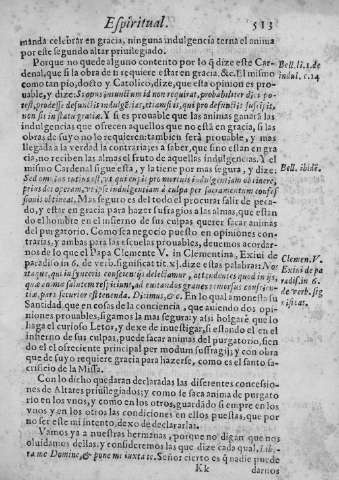 Espiritual.
513
manda celebrar en gracia, ninguna indulgencia terna el anima
por este segundo altar priuilegiado.
Porque no quede alguno contento por lo q̃ dize este Car-
denal, que si la obra de ti requiere estar en gracia. &c. El mismo
como tan pio, docto y Catolico, dize, que esta opinion es pro-
uable, y dize: Si opus iniunctum id non requirat, probabiliter dici po-
test, prodesse defunctis indulgẽtias, etiamsi is, qui pro defunctis suscipit,
non sit in statu gratiæ. Y si es prouable que las animas ganarã las
indulgencias que ofrecen aquellos que no està en gracia, si las
obras de suyo no lo requieren: tambien serà prouable, y mas
llegada a la verdad la contraria; es a saber, que sino estàn en gra
cia, no reciben las almas el fruto de aquellas indulgencias. Y el
mismo Cardenal sigue esta, y la tiene por mas segura, y dize:
Sed omnino tutius est, vt qui cupit pro mortuis indulgentiam obtinere,
prius det operam, vt ipse indulgentiam à culpa per sacramentum confes-
sionis obtineat. Mas seguro es del todo el procurar salir de peca-
do, y estar en gracia para hazer sufragios a las almas, que estan
do el hombre en el infierno de sus culpas querer sacar animas
del purgatorio. Como sea negocio puesto en opiniones con-
trarias, y ambas para las escuelas prouables, deuemos acordar-
nos de lo que el Papa Clemente V. in Clementina, Exiui de
paradiso in 6. de verb. significat tit. xj. dize estas palabras: No
En lo qual amonesta su
Santidad, que en cosas de la conciencia, que auiendo dos opi-
niones prouables, sigamos la mas segura: y assi holgarè que lo
haga el curioso Letor, y dexe de inuestigar, si estando el en el
infierno de sus culpas, puede sacar animas del purgatorio, sien
do el el ofreciente principal per modum suffragij; y con obra
que de suyo requiere gracia para hazerse, como es el santo sa-
crificio de la Missa.
Con lo dicho quedaran declaradas las diferentes concessio-
nes de Altares priuilegiados; y como se saca anima de purgato
rio en los vnos, y como en los otros, guardãdo siempre en los
vnos y en los otros las condiciones en ellos puestas, que por
no ser este mi intento, dexo de declararlas.
Vamos ya a nuestras hermanas, porque no digan que nos
oluidamos dellas, y consideremos las que dize cada qual, Libe-
ra me Domine, & pone me iuxta te. Señor cierto es q̃ nadie puede
Kk
darnos
Bell. li. 1. de
indul. c. 14
Bell. ibidẽ.
Clemen. V.
Exiui de pa
radiso. in 6.
de verb. sig
nificat.